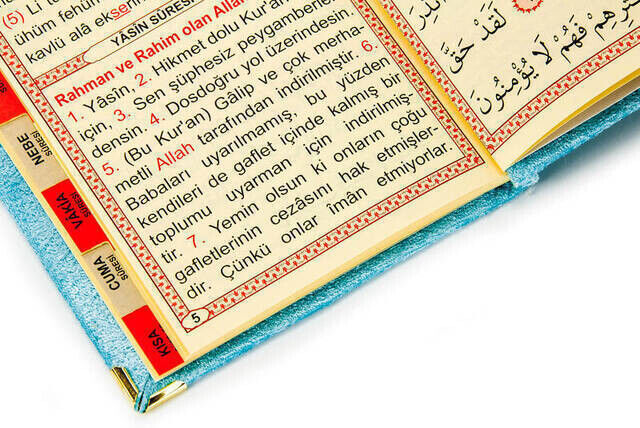 (5) Li t
ühüm fehüm
kavlü alâ ekserih
YÂSİN SURESİ
Rahman ve Rahim olan Allah
1. Yâsîn, 2. Hikmet dolu Kur'an
için, 3. Sen şüphesiz peygamberler
densin. 4. Dosdoğru yol üzerindesin.
5. (Bu Kur'an) Gâlip ve çok merha-
metli Allah tarafından indirilmiştir. 6.
Babaları uyarılmamış, bu yüzden
kendileri de gaflet içinde kalmış bir
toplumu uyarman için indirilmiş-
tir. 7. Yemin olsun ki onların çoğu
gafletlerinin cezâsını hak etmişler-
dir. Çünkü onlar imân etmiyorlar.
5
NEBE
SÛRESİ
VÂKIA
SÛRESİ
CUMA
SÛRESİ
KISA
لَقَدْ حَقَّ
فَهُمْ لَا يُؤْمِنُونَ